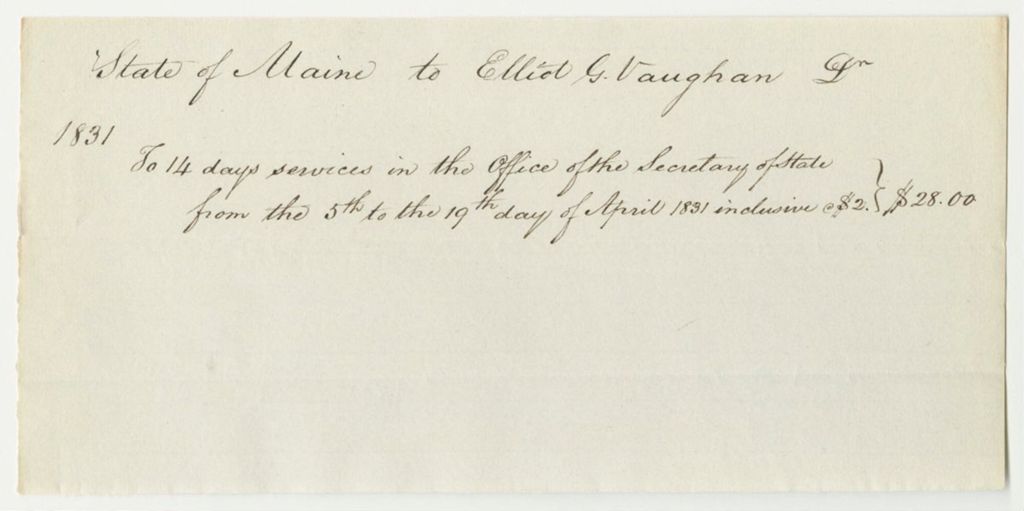 State of Maine to Elliot G. Vaughan Dr
1831
To 14 days services in the Office of the Secretary of State
from the 5th to the 19th day of April 1831 inclusive @ $2. } $28.00